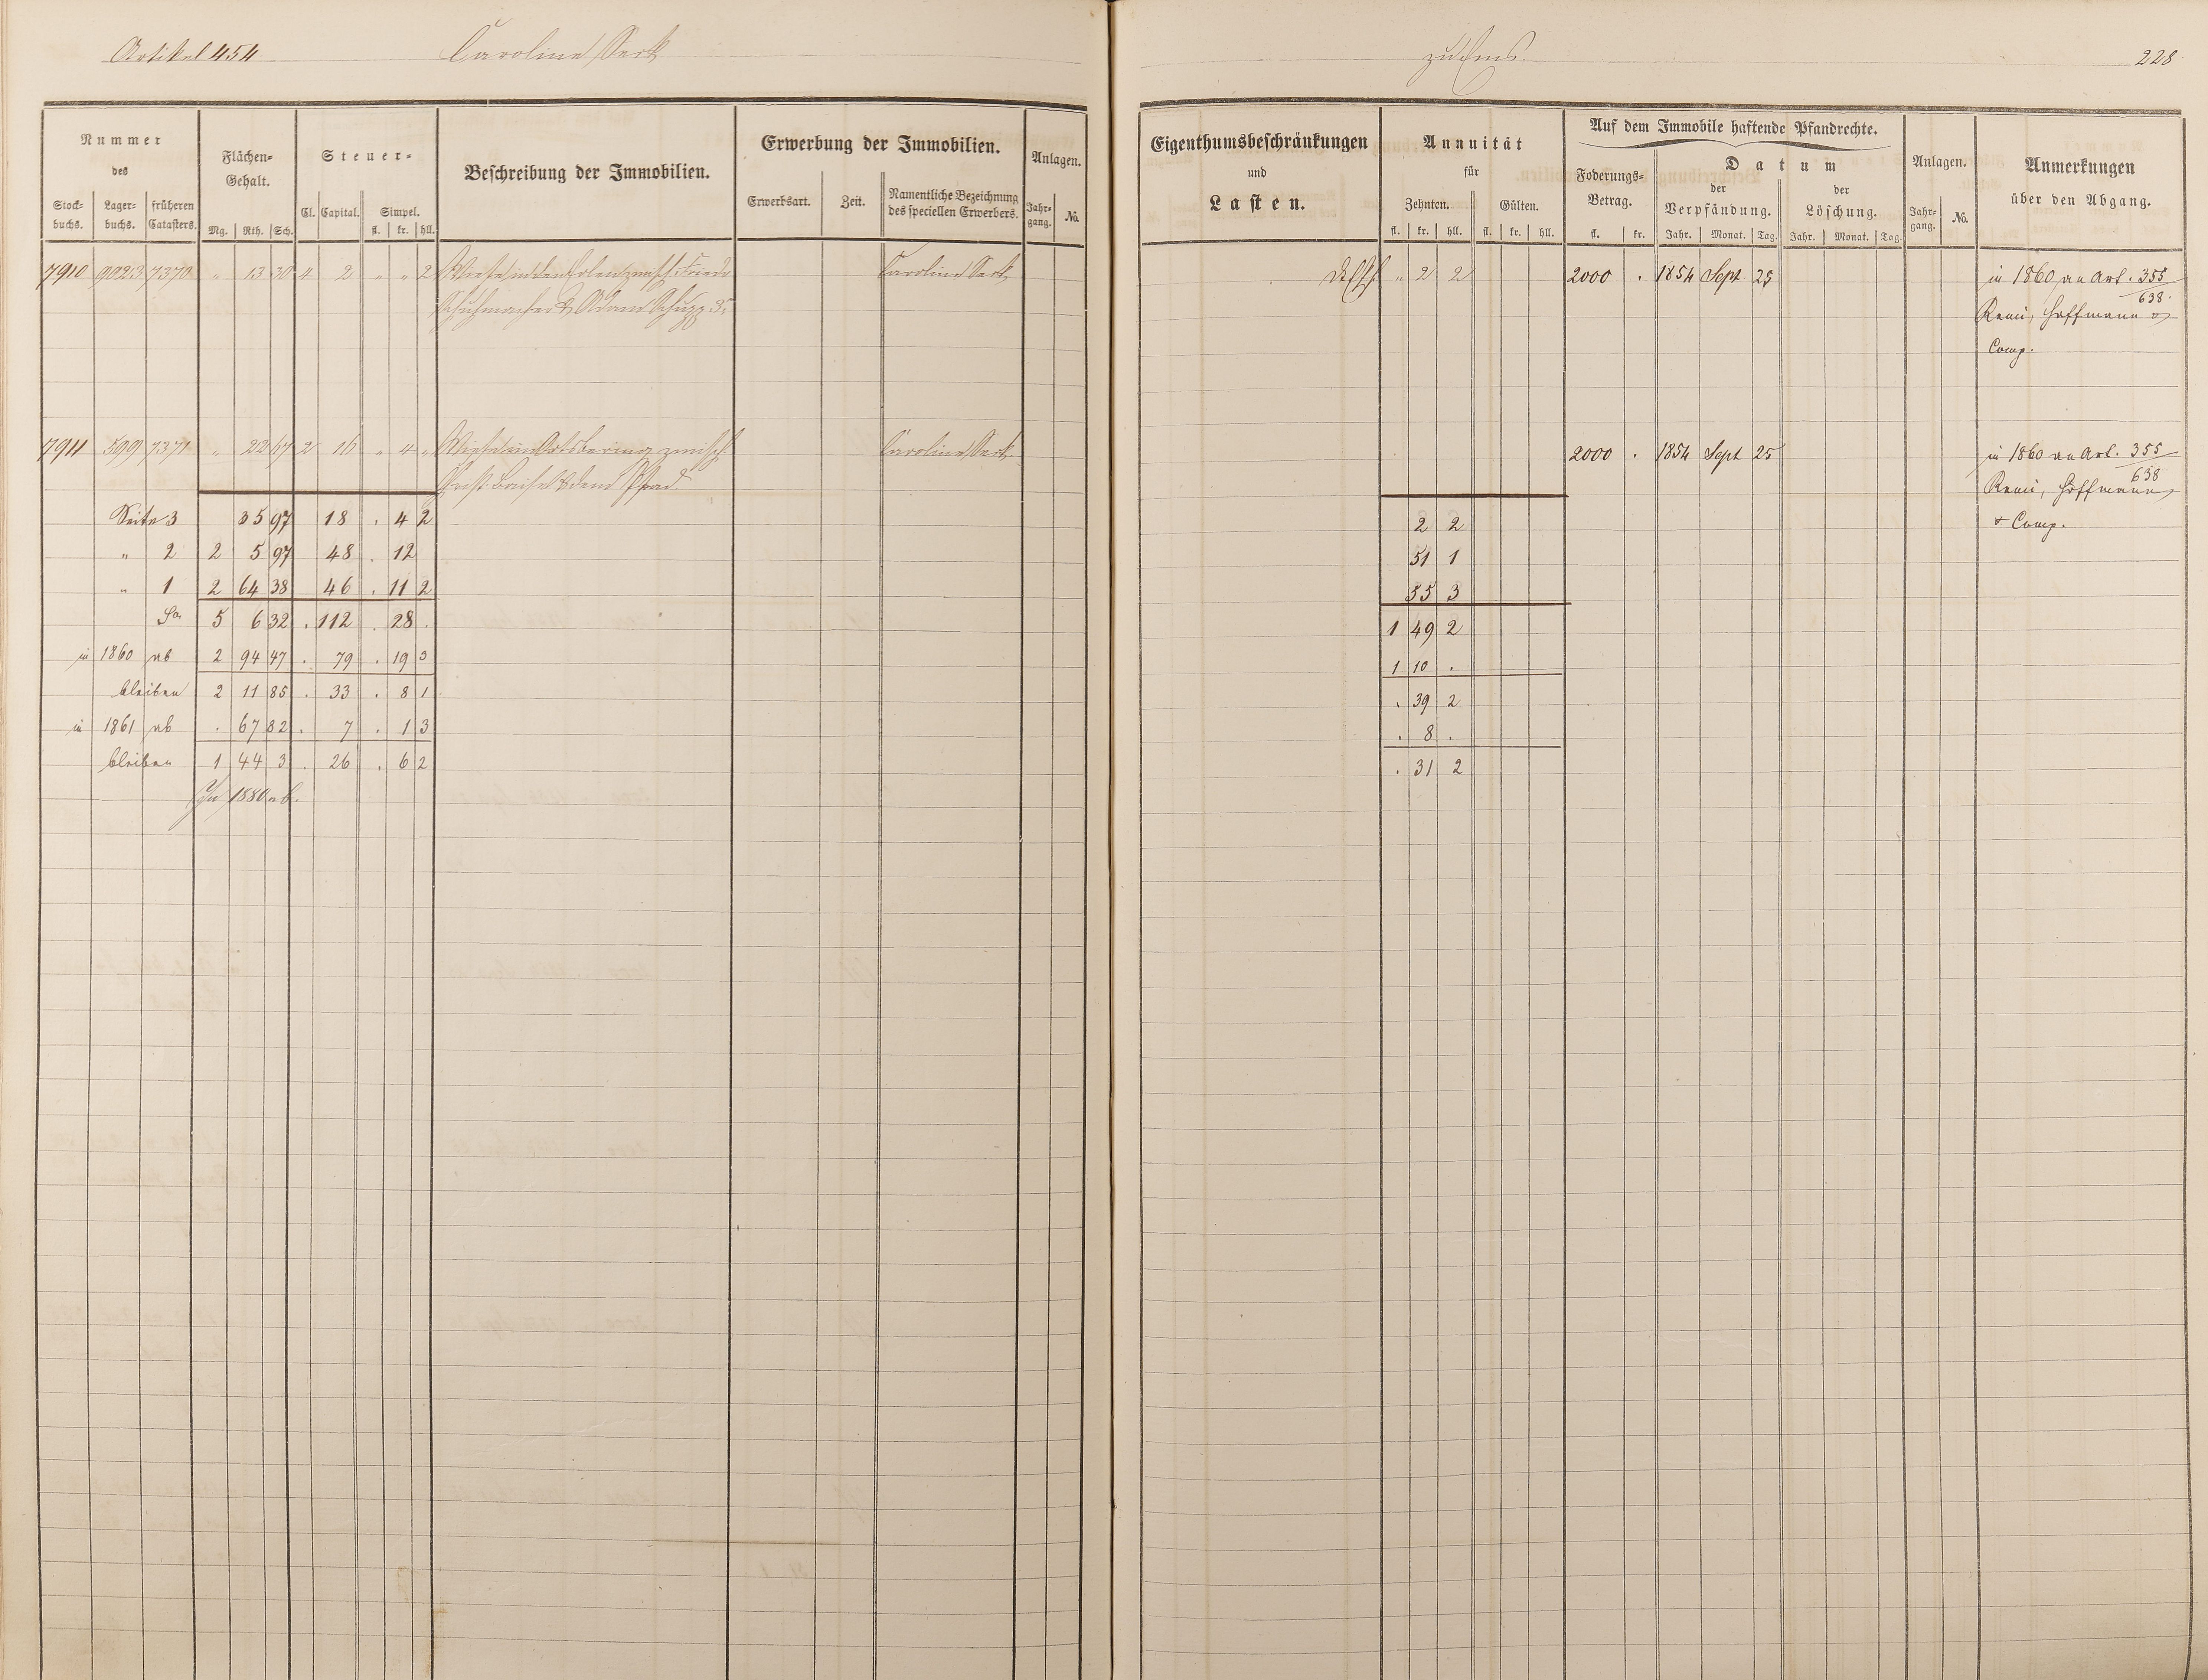 Artikel 454 Caroline Serk zu Ems. 228
Nummer
des
Stock-buchs. Lager-buchs. früheren Catasters.
Flächen-Gehalt.
Mg. Rth. Sch.
Steuer-
Cl. Capital. Simpel.
fl. kr. hll.
Beschreibung der Immobilien.
Erwerbung der Immobilien.
Erwerbsart. Zeit. Namentliche Bezeichnung des speciellen Erwerbers.
Anlagen.
Jahr-gang. No.
Eigenthumsbeschränkungen
und
Lasten.
Annuität
für
Zehnten. Gülten.
fl. kr. hll. fl. kr. hll.
Auf dem Immobile haftende Pfandrechte.
Foderungs-Betrag.
fl. kr.
Datum
der Verpfändung. der Löschung.
Jahr. Monat. Tag. Jahr. Monat. Tag.
Anlagen.
Jahr-gang. No.
Anmerkungen
über den Abgang.
7910 9023 7370 " 13 30 4 2 " " 2 Wiese in den zwisch. Friedr. Caroline Serk " 2 2 2000 . 1854 Sept. 25 in 1860 an Art. 355/638
Schuhmacher & Adam Schupp 3r Remi, Hoffmann &
Comp.
7911 599 7371 " 22 67 2 16 " 4 " Wiese im Ortsbering zwisch. Caroline Serk 2000 . 1854 Sept 25 in 1860 an Art. 355/638
& dem Pfad. Remi, Hoffmann
Seite 3 35 97 18 . 4 2 2 2 & Comp.
" 2 2 5 97 48 . 12 51 1
" 1 2 64 38 46 . 11 2 55 3
Sa 5 6 32 . 112 . 28 . 1 49 2
in 1860 ab 2 94 47 . 79 . 19 3 1 10 .
bleiben 2 11 85 . 33 . 8 1 . 39 2
in 1861 ab . 67 82 . 7 . 1 3 . 8 .
bleiben 1 44 3 . 26 . 6 2 . 31 2
In 1880 ab.